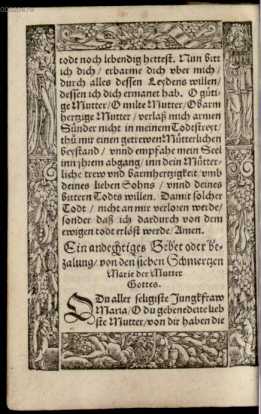 todt noch lebendig hettest. Nun bitt
ich dich / erbarme dich vber mich /
durch alles dessen Leydens willen /
dessen ich dich ermanet hab. O güti-
ge Mutter / O milte Mutter / O barm
hertzige Mutter / verlaß mich armen
Sünder nicht in meinem Todtstreyt /
thů mir einen getrewen Mütterlichen
beystand / vnnd empfahe mein Seel
inn jhrem abgang / inn dein Mütter-
liche trew vnd barmhertzigkeit vmb
deines lieben Sohns / vnnd deines
bittern Todts willen. Damit solcher
Todt / nicht an mir verloren werde /
sonder daß ich dardurch von dem
ewigen todt erlöst werde / Amen.
Ein andechtiges Gebet oder be-
zalung / von den siben Schmertzen
Marie der Mutter
Gottes.
O Du aller seligiste Jungkfraw
Maria / O du gebenedeite lieb
ste Mutter / von dir haben die